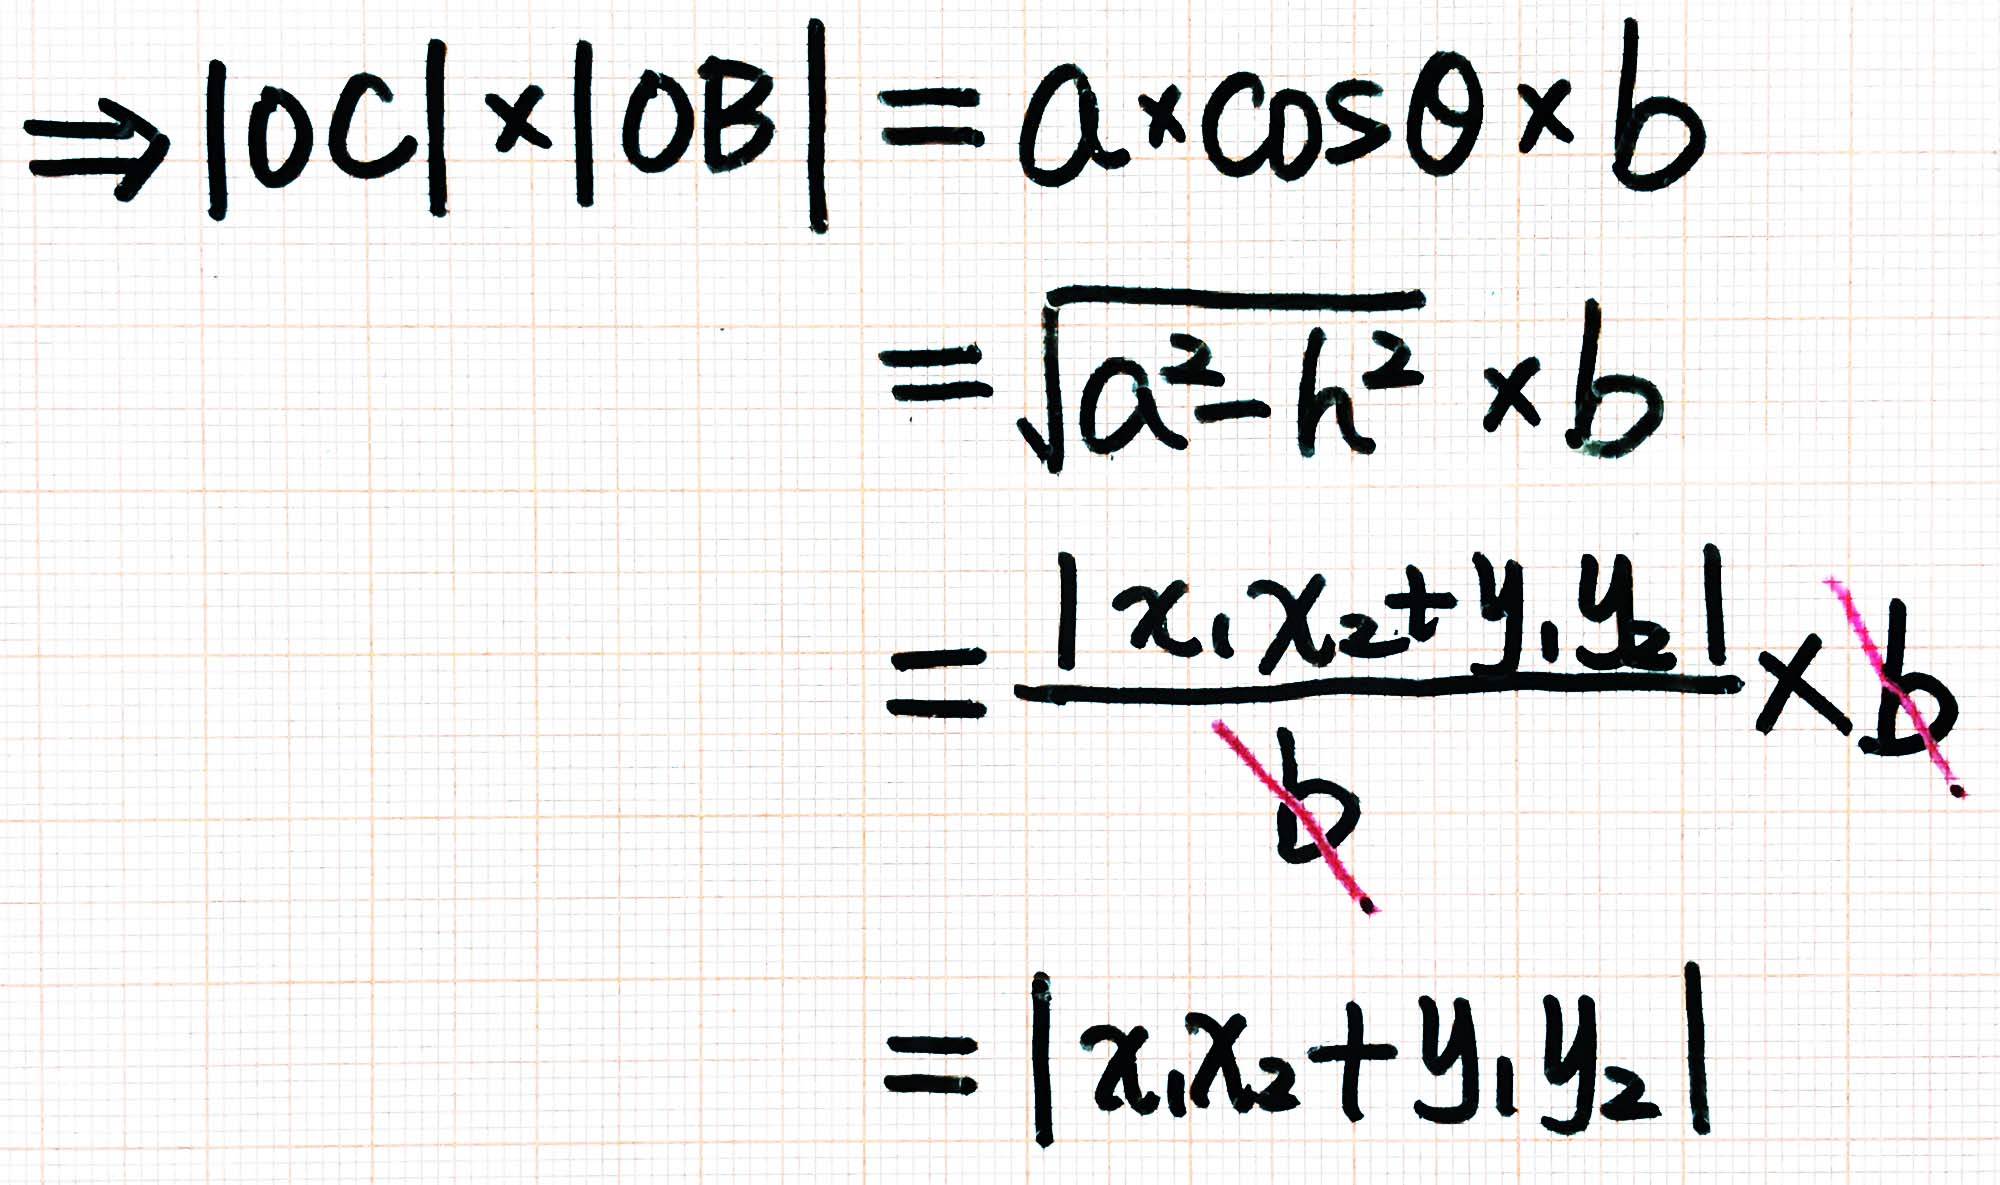 ⇒|OC|×|OB| = a×cosθ×b
= √(a²-h²) ×b
= |x₁x₂+y₁y₂|/b ×b
= |x₁x₂+y₁y₂|